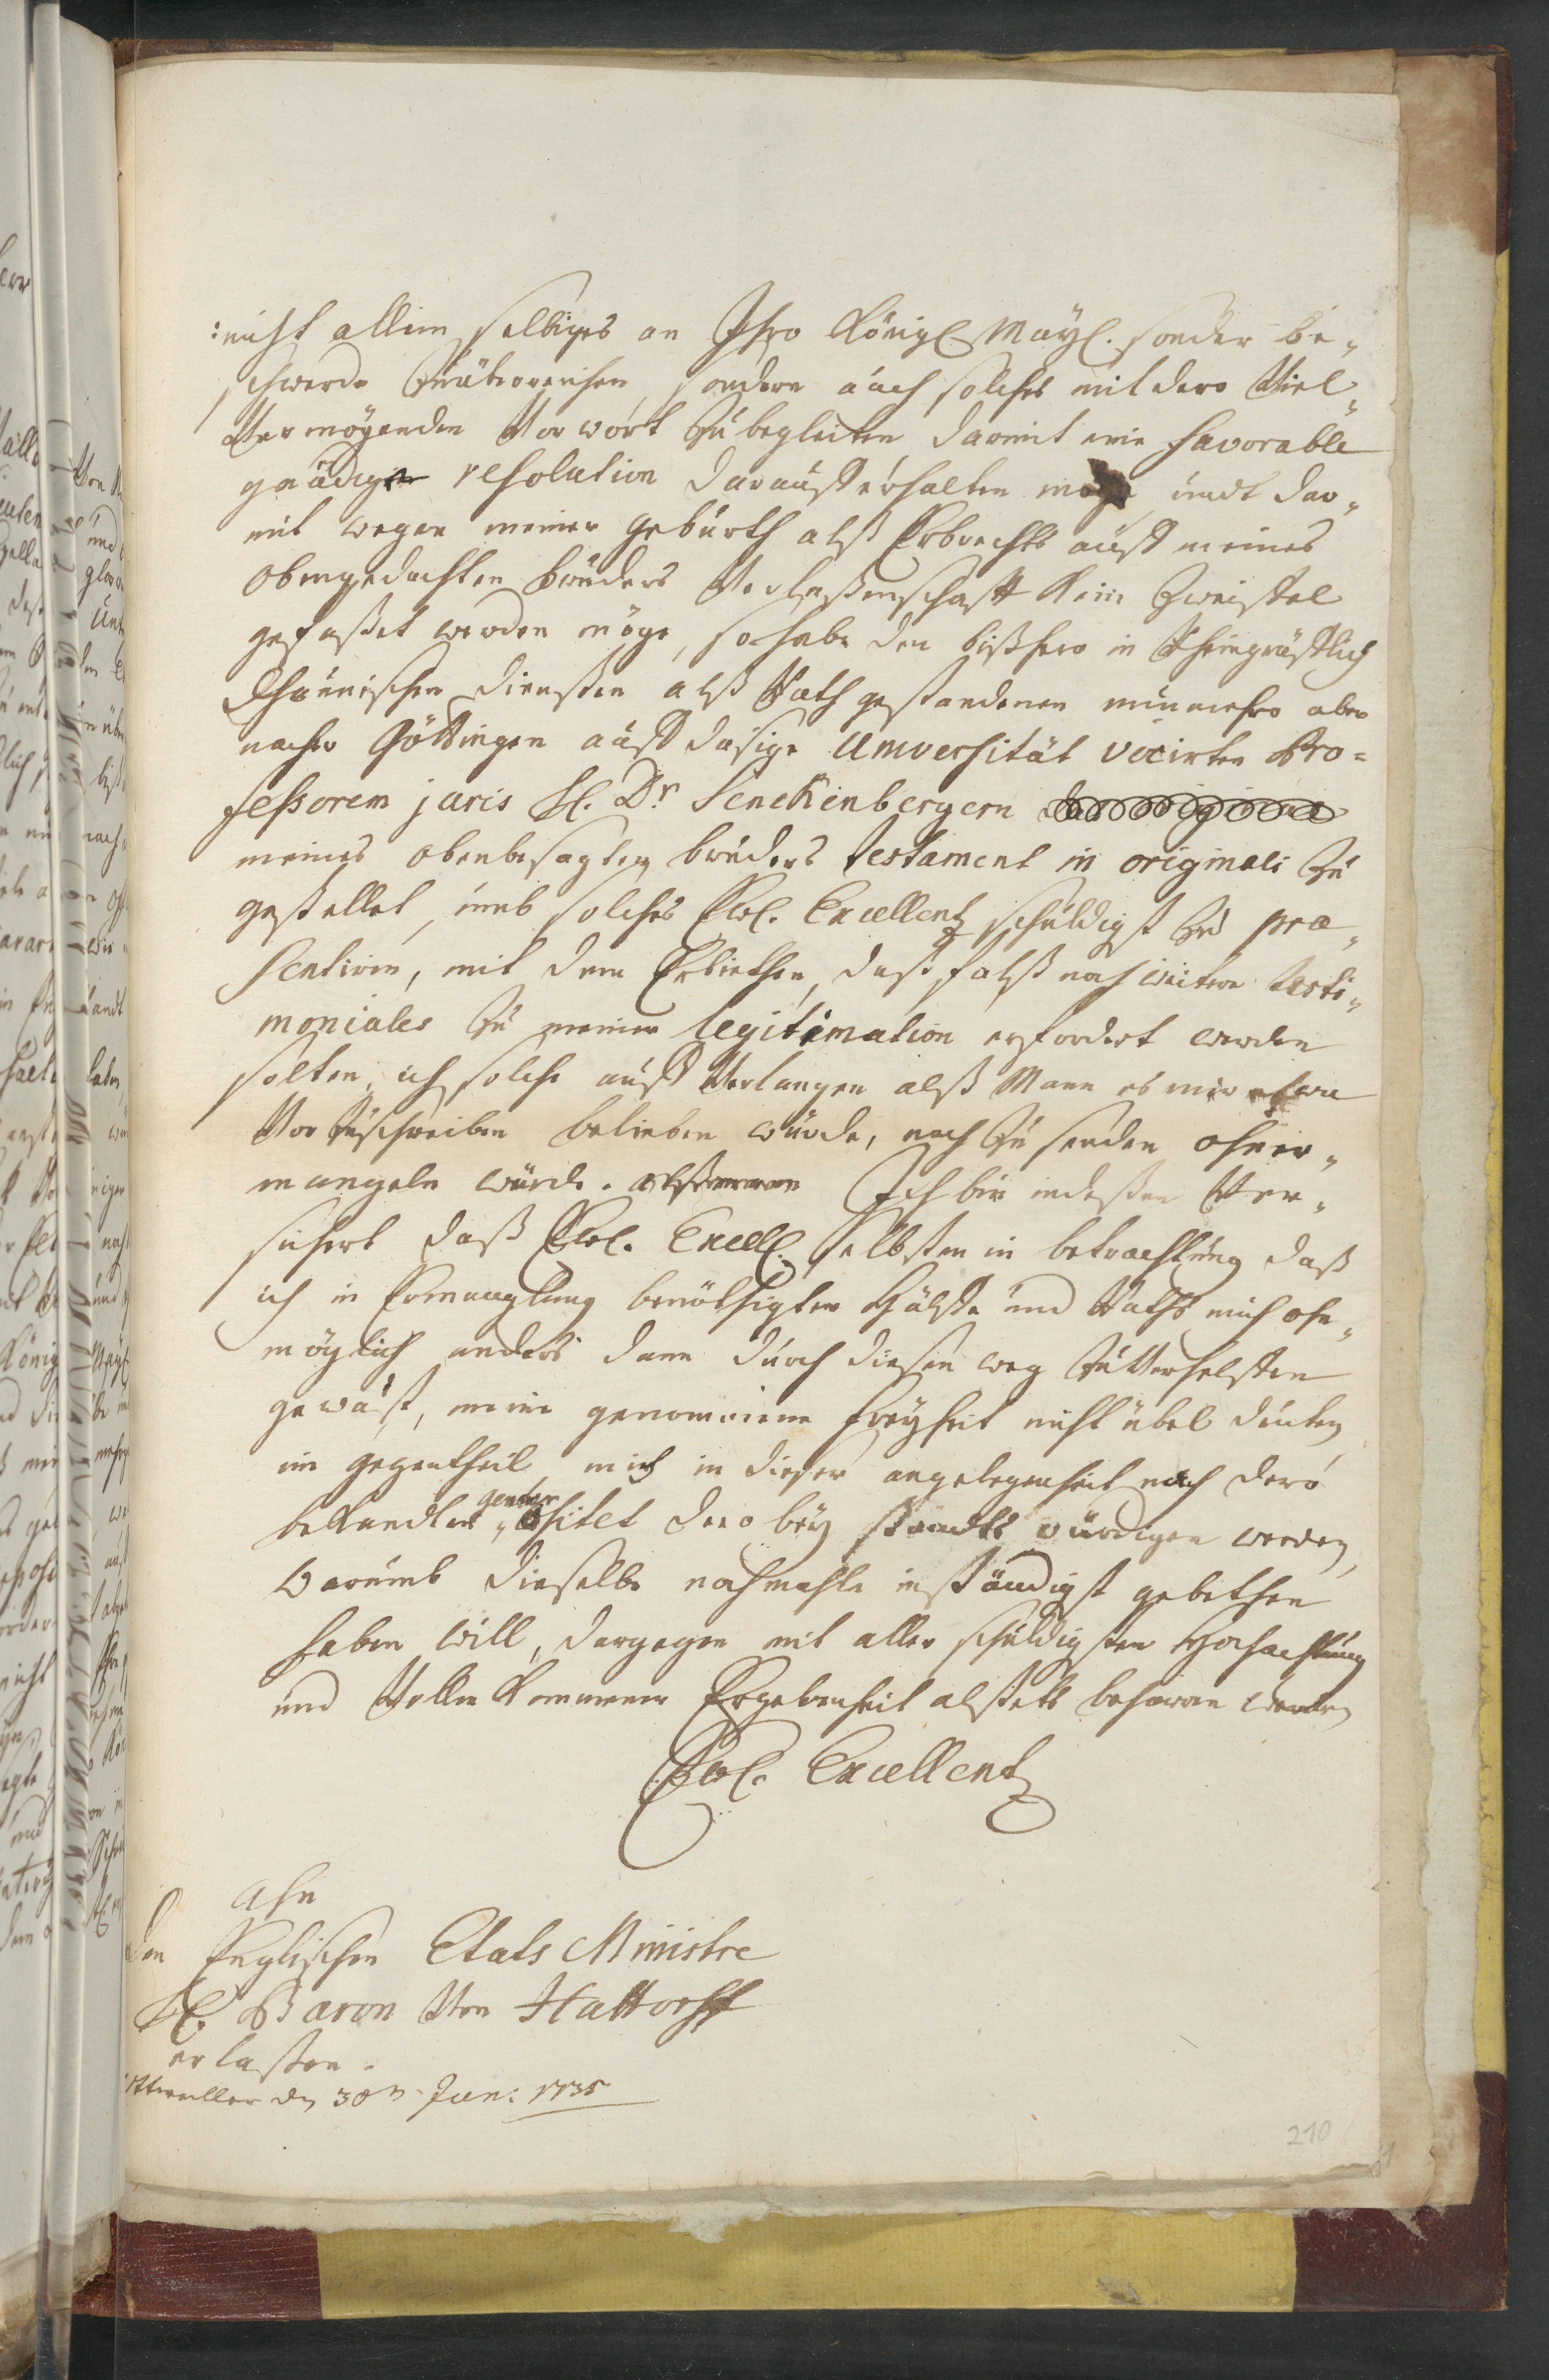 :nicht allein selbiges an Ihro Königl. Mayl. sonder be-
schwerde zu überreichen, sondern auch solches mit dero Viel-
Vermögenden Vorwort zu begleiten damit eine favorable
gnädige resolution darauff erhalten möge, undt dar-
mit wegen meiner geburth alß Erbrechts auß meines
obengedachten bruders Verlaßenschafft kein Zweiffel
gefaßet werden möge, so habe den bißhero in Rheingräfflich
Dhaunischen diensten alß Rath gestandenen nunmehro aber
nacher Göttingen auff dasige Universität vocirten Pro=
feßorem juris H. Dr. Senckenbergern
meines obenbesagten bruders testament in originali zu
gestellet, umb solches Ewl. Excellentz schuldigst zu præ-
sentiren, mit dem Erbiethen, daß falß noch weitere testi-
moniales zu meiner legitimation erfordert werden
solten, ich solche auff Verlangen alß Mann es mir etwa
Vorzuschreiben belieben würde, nach zu senden ohner-
mangeln würde. Ich bin indeßen Ver-
sichert daß Ewl. Excell. selbsten in betrachtung daß
ich in Ermanglung benöthigter Hülffe und Raths mich ohn-
möglich anders dann durch diesen weg zu verhelffen
gewüst, meine genommene freyheit nicht übel deuten
im gegentheil mich in dieser angelegenheit nach dero
bekandten gener ositet dero bey standts würdigen werden,
Warumb dieselbe nochmahls inständigst gebethen
haben will, dargegen mit aller schuldigsten Hochachtung
und Vollkommener Ergebenheit alstets beharren werde
Ewl. Excellentz
Ahn
den Englischen Etats Ministre
H. Baron Von Hattorff
erlaßen.
den 30n Jun: 1735
210